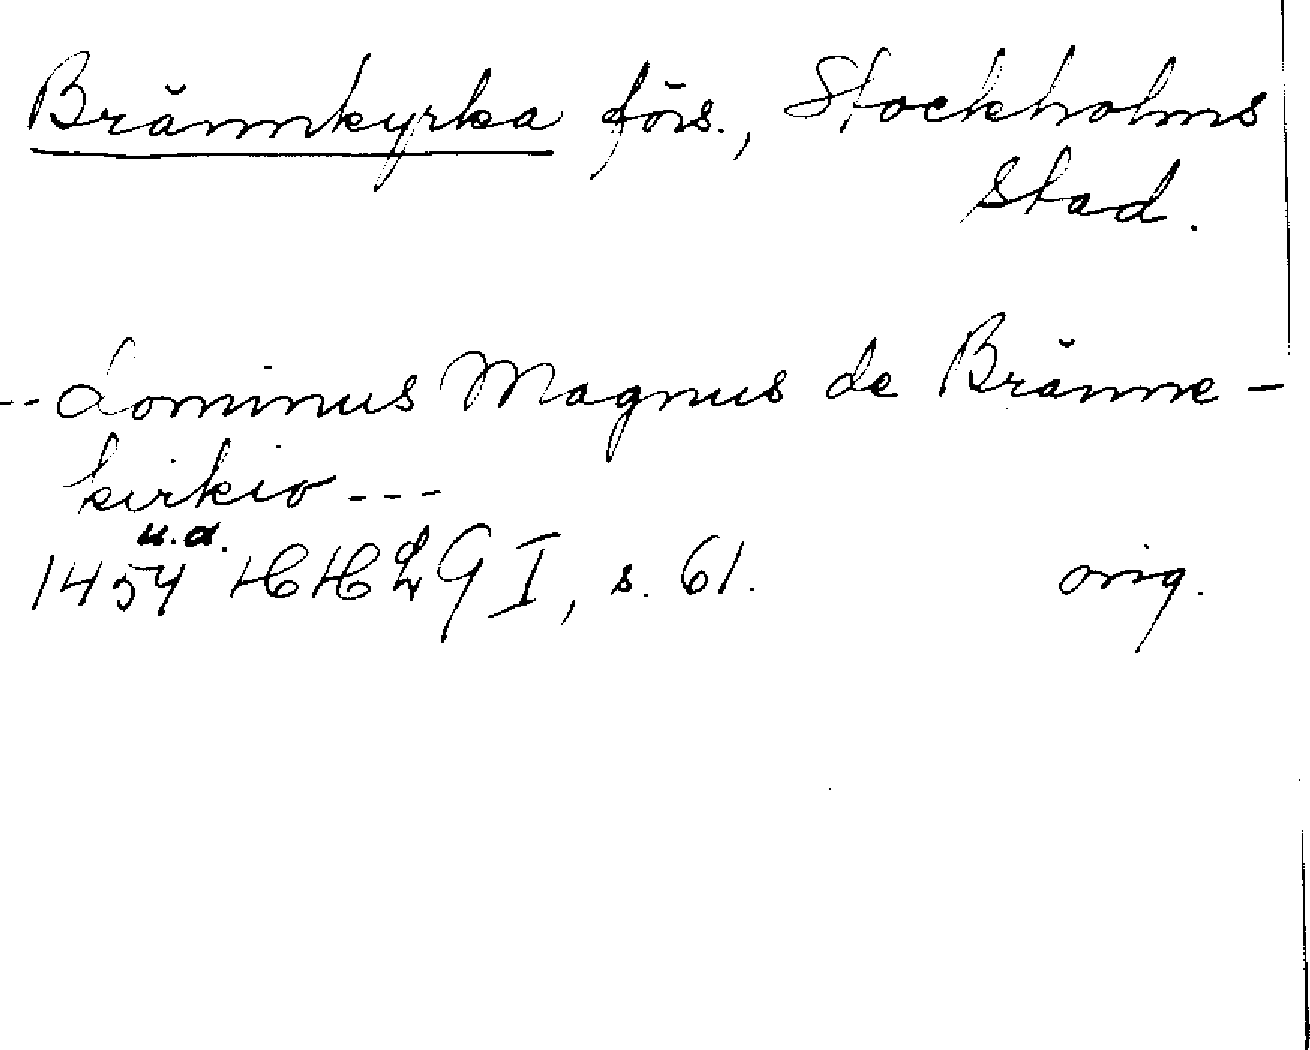 Brännkyrka förs., Stockholms
stad.
-- dominus Magnus de Bränne-
kirkio ---
u.d.
1454 HHLG I, s. 61. orig.